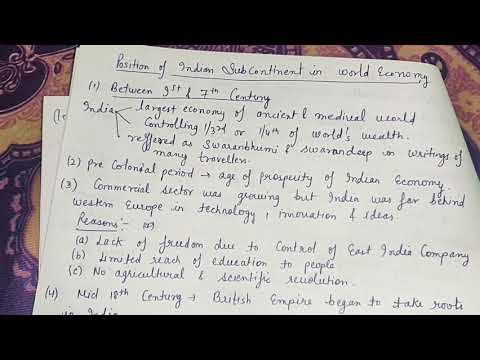 Position of Indian Subcontinent in world Economy
(1) Between 1st & 7th Century
India → largest economy of ancient & medival world
Controlling 1/3rd or 1/4th of world's wealth.
reffered as Swaranbhumi & swarandeep in writings of
many travellers.
(2) Pre Colonial period → age of prosperity of Indian Economy.
(3) Commercial sector was growing but India was far behind
western Europe in technology, innovation & ideas.
Reasons:-
(a) Lack of freedom due to Control of East India Company
(b) Limited reach of education to people
(c) No agricultural & scientific revolution.
(4) Mid 18th Century → British Empire began to take roots
in India